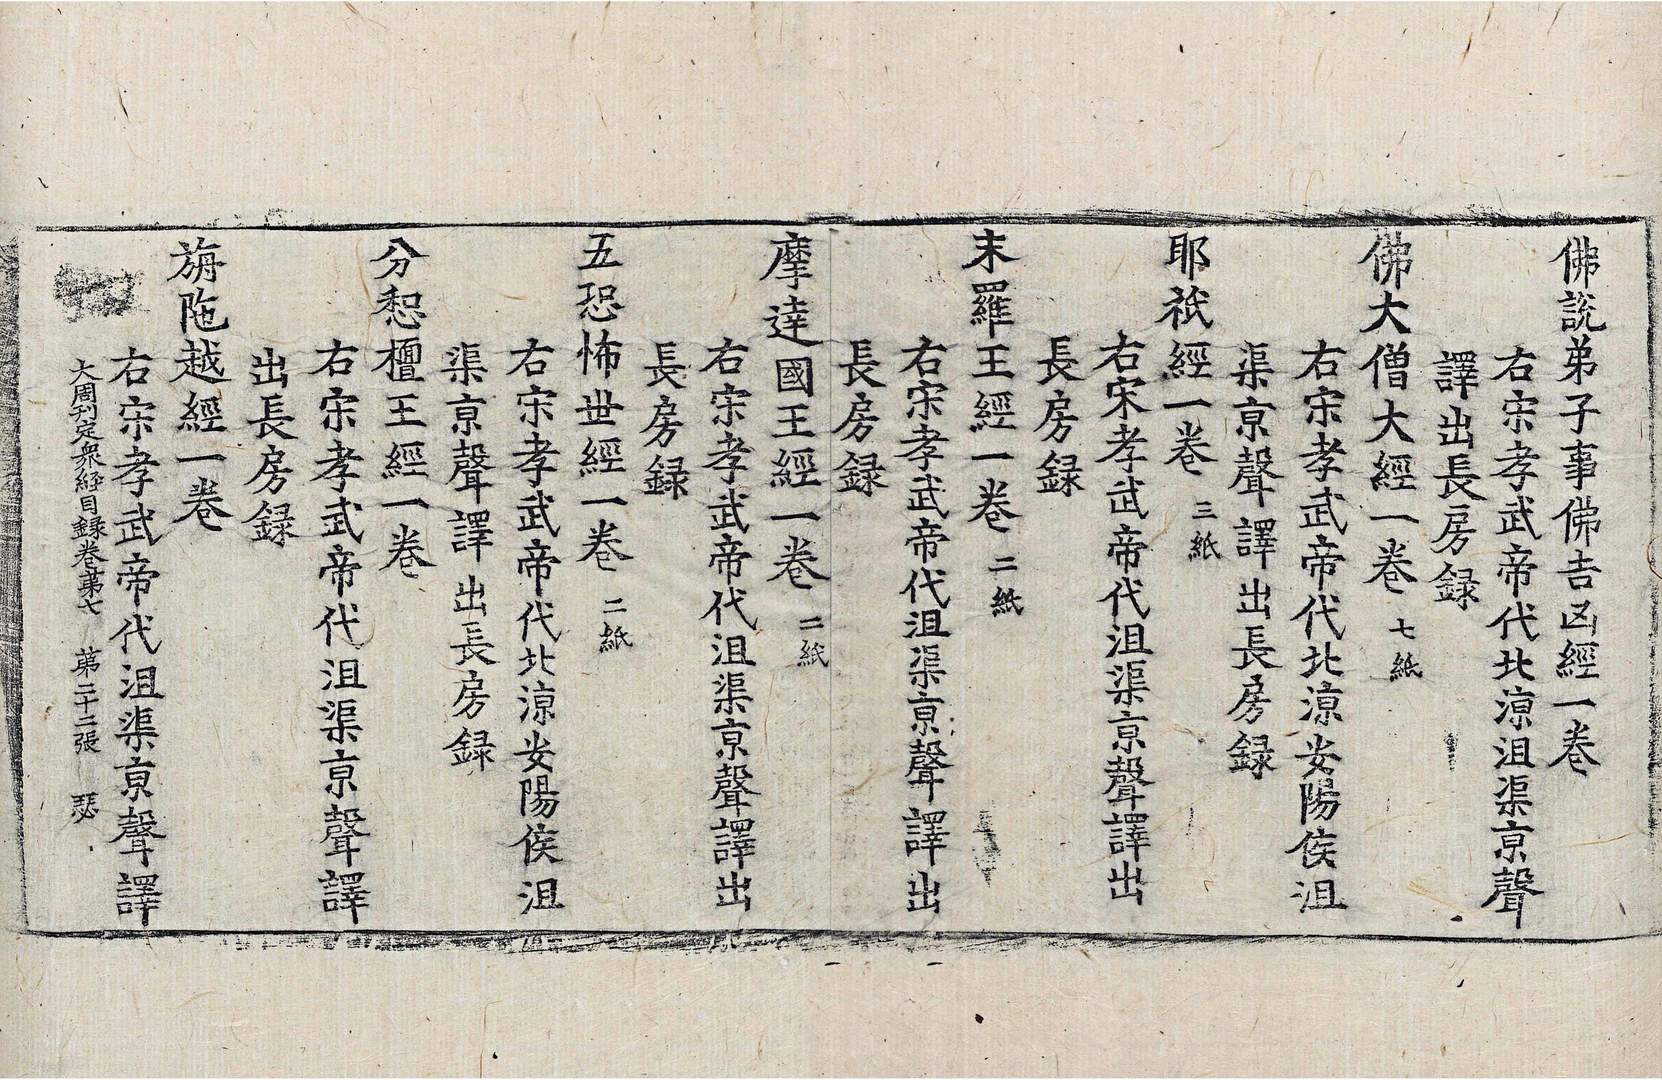 佛說弟子事佛吉凶經一卷
右宋孝武帝代北涼沮渠京聲
譯出長房録
佛大僧大經一卷 七紙
右宋孝武帝代北涼安陽侯沮
渠京聲譯出長房録
耶祇經一卷 三紙
右宋孝武帝代沮渠京聲譯出
長房録
末羅王經一卷 二紙
右宋孝武帝代沮渠京聲譯出
長房録
摩達國王經一卷 二紙
右宋孝武帝代沮渠京聲譯出
長房録
五恐怖世經一卷 二紙
右宋孝武帝代北涼安陽侯沮
渠京聲譯出長房録
分惒檀王經一卷
右宋孝武帝代沮渠京聲譯
出長房録
旃陁越經一卷
右宋孝武帝代沮渠京聲譯
大周刊定衆經目録卷第七 第二十二張 瑟